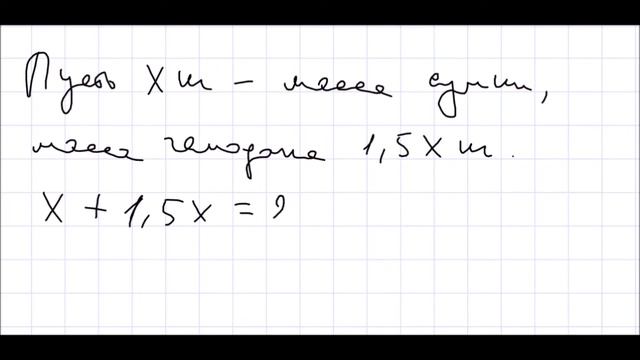 Пусть X т – масса сумки,
масса чемодана 1,5X т.
X + 1,5x = 9